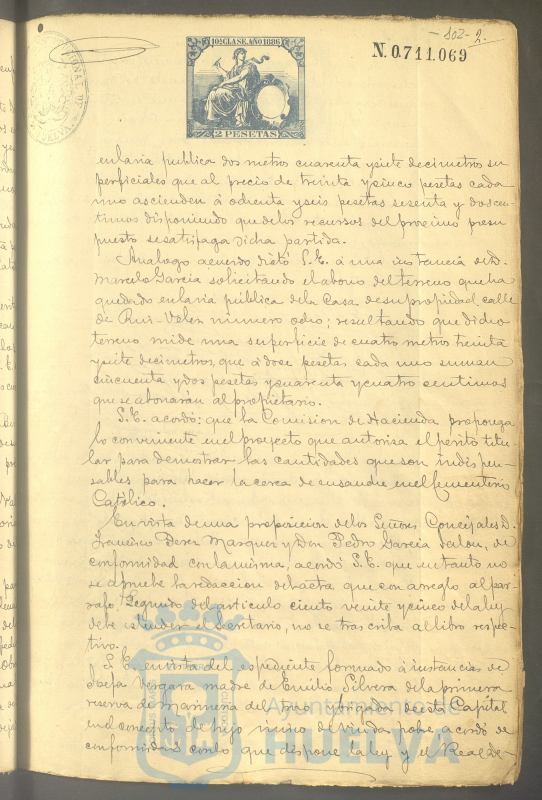 102-2.
N.0.711.069
10ª CLASE. AÑO 1886
2 PESETAS
en la via publica dos metros cuarenta y siete decimetros su-
perficiales que al precio de treinta y cinco pesetas cada
uno ascienden á ochenta y seis pesetas sesenta y dos cen-
timos disponiendo que de los recursos del procsimo presu
puesto se satisfaga dicha partida.
Analogo acuerdo dictó S.E. á una instancia de D.
Marcelo Garcia solicitando el abono del terreno que ha
quedado en la via pública de la Casa de su propiedad calle
de Rui-Velez número ocho; resultando que dicho
terreno mide una superficie de cuatro metros treinta
y siete decimetros, que á doce pesetas cada uno suman
cincuenta y dos pesetas y cuarenta y cuatro centimos
que se abonarán al propietario.
S.E. acordó: que la Comision de Hacienda proponga
lo conveniente en el proyecto que autorisa el périto titu-
lar para demostrar las cantidades que son indispen-
sables para hacer la cerca de ensanche en el Cementerio
Católico.
En vista de una proposicion de los Señores Concejales D.
Francisco Perez Marquez y Don Pedro Garcia de
conformidad con la misma, acordó S.E. que en tanto no
se apruebe la redaccion del acta, que con arreglo al par-
rafo Segundo del articulo ciento veinte y cinco de la ley
debe estender el Secretario, no se trascriba al libro respec-
tivo.
S.E. en vista del espediente formado á instancia de
Josefa Vergara madre de Emilio Silvera de la primera
reserva de marineria del trozo y brigada de esta Capital
en el concepto de hijo único de viuda pobre acordó de
conformidad con lo que dispone la ley y el Real De-
Ayuntamiento de
HUELVA